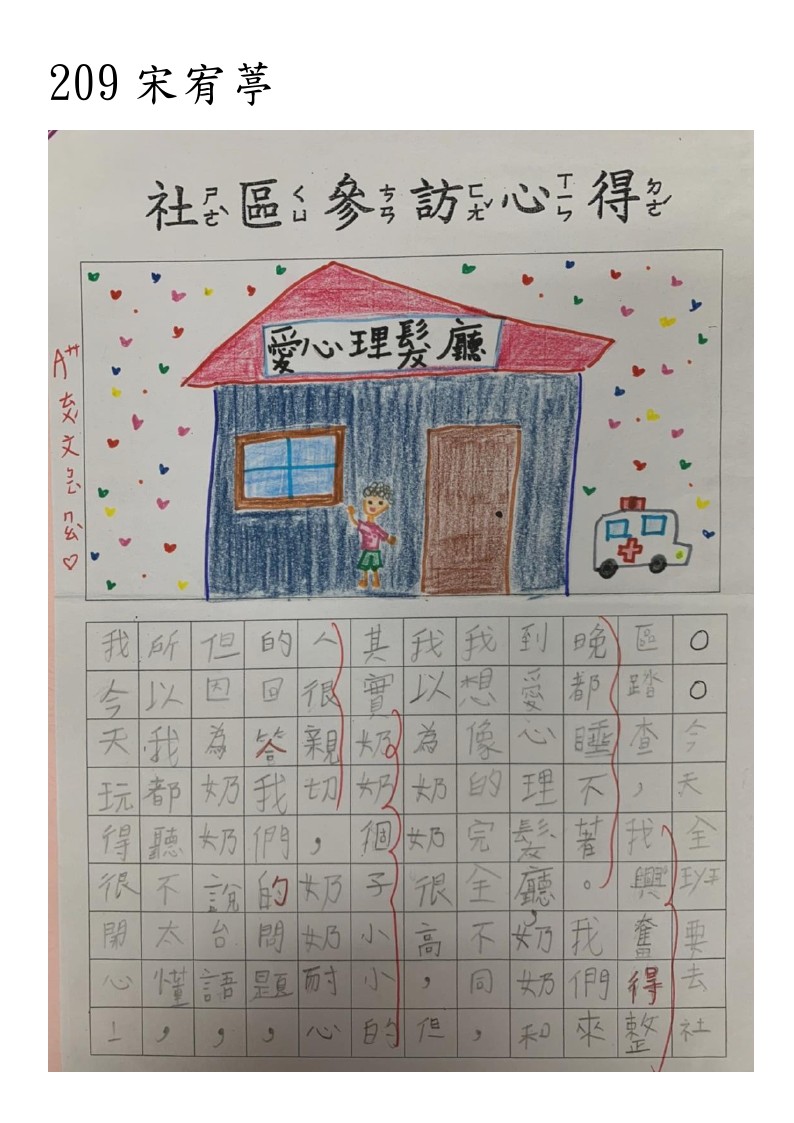 209 宋宥葶
社ㄕㄜˋ區ㄑㄩ參ㄘㄢ訪ㄈㄤˇ心ㄒㄧㄣ得ㄉㄜˊ
愛心理髮廳
A++
○○今天全班要去社
區踏查，我興奮得整
晚都睡不著。我們來
到愛心理髮廳，奶奶和
我想像的完全不同，
我以為奶奶很高，但
其實奶奶個子小小的
人很親切，奶奶耐心
的回答我們的問題，
但因為奶奶說台語，
所以我都聽不太懂，
我今天玩得很開心！